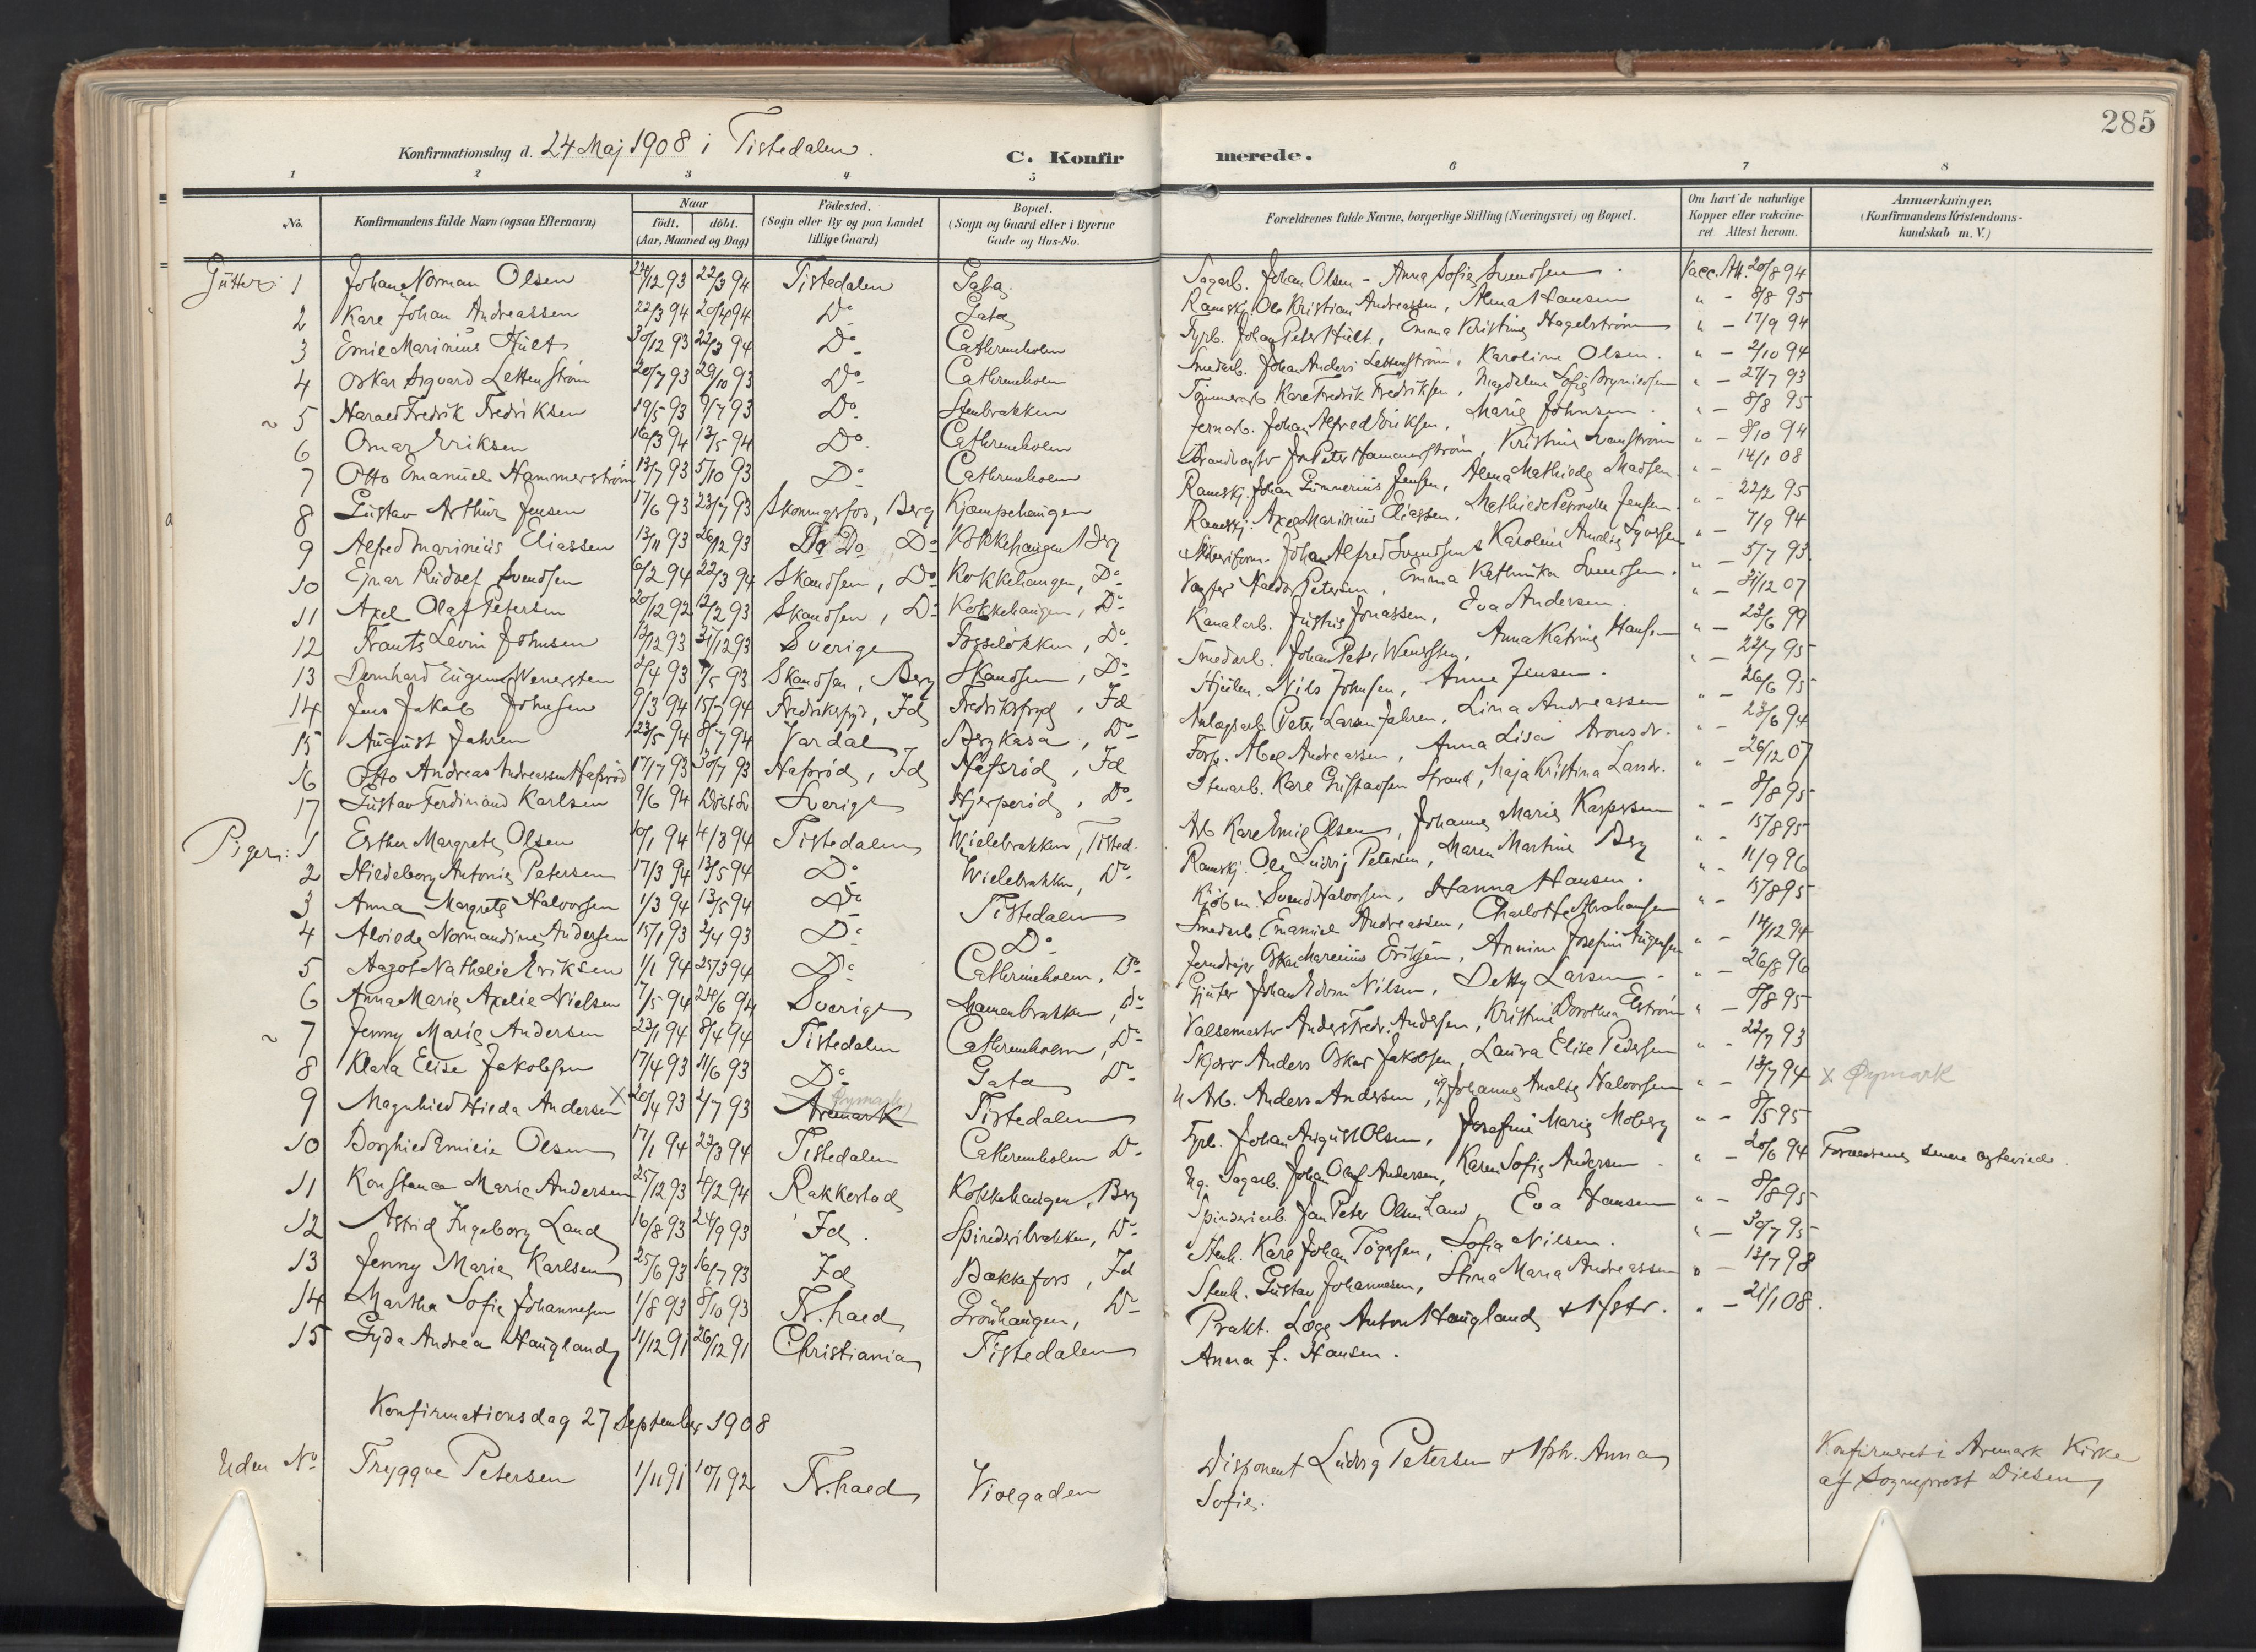 285
Konfirmationsdag d. 24 Maj 1908 i Tistedalen.
C. Konfirmerede.
1 2 3 4 5 6 7 8
No. Konfirmandens fulde Navn (ogsaa Efternavn) Naar født. døbt. (Aar, Maaned og Dag) Fødested. (Sogn eller By og paa Landet tillige Gaard) Bopæl. (Sogn og Gaard eller i Byerne Gade og Hus-No. Forældrenes fulde Navne, borgerlige Stilling (Næringsvei) og Bopæl. Om havt de naturlige Kopper eller vaksineret Attest herom. Anmærkninger. (Konfirmandens Kristendomskundskab m. V.)
Gutter: 1 Johan Norman Olsen 22/3 94 Tistedalen Gata. Sagarb. Johan Olsen - Anna Sofie Svendsen. Vacc. Att. 20/8 94
2 Kare Johan Andreassen 22/3 94 20/4 94 Do Gata Ole Kristian Andreassen, Alma Hansen " - 8/8 95
3 Emil Marinius Hult 30/12 93 22/3 94 Do Cathrineholm Fyrb. Johan Peter Hult, Emma Kristine Hagelstrøm " - 17/9 94
4 Oskar Sigvard Lettenstrøm 20/7 93 29/10 93 Do Cathrineholm Smedarb. Johan Anders Lettenstrøm, Karoline Olsen. " - 2/10 94
~ 5 Harald Fredrik Fredriksen 19/5 93 9/7 93 Do Stenbrakken Tømmerarb. Karl Fredrik Fredriksen, Magdalena Sofie " - 27/7 93
6 Omar Eriksen 16/3 94 13/5 94 Do. Cathrineholm Jernarb. Johan Alfred Eriksen, Marie Johnsen. " - 8/8 95
7 Otto Emanuel Hammerstrøm 13/7 93 5/10 93 Do Cathrineholm Jon Peter Hammerstrøm, Kristine Svanstrøm " - 8/10 94
8 Gustav Arthur Jensen 17/6 93 23/7 93 Skonningsfos, Berg Kjæmpehaugen Johan Gunnerius Jensen, Alma Mathilde Madsen " - 14/1 08
9 Alfred Marinius Eliassen 13/11 93 26/12 93 Do Do Do Kokkehaugen, Berg Axel Marinius Eliassen, Mathilde Petronelle Jensen " - 22/2 95
10 Ejnar Rudolf Svendsen 6/2 94 22/3 94 Skandsen, Do Kokkehaugen, Do Johan Alfred Svendsen, Karoline Amalie " - 7/9 94
11 Axel Olaf Petersen 20/12 92 12/2 93 Skandsen, Do Kokkehaugen, Do Vagter Petersen, Emma Kathinka Svendsen. " - 5/7 93
12 Frants Levin Johnsen 13/12 93 31/12 93 Sverige Fosseløkken, Do Kanalarb. Justus Jonassen, Eva Andersen. " - 31/12 07
13 Bernhard Eugen Wenersten 2/4 93 7/5 93 Skandsen, Berg Skandsen, Do Smedarb. Johan Peter Wenersten, Anna Katrine Hansen " - 23/6 99
14 Jens Jakob Johnsen 9/3 94 15/7 94 Fredriksfryd, Id Fredriksfryd, Id Nils Johnsen, Anne Jensen. " - 22/7 95
15 August Jahren 23/5 94 8/7 94 Vardal Bergkasa, Do Peter Larsen Jahren, Lina Andreassen " - 26/6 95
16 Otto Andreas Andreassen Hafsrød 17/7 93 30/7 93 Hafsrød, Id Hafsrød, Id Abel Andreassen, Anna Lisa Aronsdr. " - 23/6 94
17 Gustav Ferdinand Karlsen 9/6 94 Døbt Sv. Sverige Hjerperød, Do. Stenarb. Karl Gustavsen Strand, Maja Kristina Larsdr. " - 26/12 07
Piger: 1 Esther Margrete Olsen 10/1 94 4/3 94 Tistedalen Wielebrakken, Tisted. Arb. Karl Emil Olsen, Johanne Marie Kaspersen " - 8/8 95
2 Hildeborg Antonie Petersen 17/3 94 13/5 94 Do Wielebrakken, Do Ole Ludvig Petersen, Maren Martine Berg " - 15/8 95
3 Anna Margrete Halvorsen 1/3 94 13/5 94 Do Tistedalen Kjøbm. Svend Halvorsen, Hanna Hansen. " - 11/9 96
4 Alvilde Normandine Andersen 15/1 93 2/4 93 Do Do Smedarb. Emanuel Andreassen, Charlotte Abrahamsen " - 15/8 95
5 Aagot Nathalie Eriksen 1/1 94 25/3 94 Do Cathrineholm, Do Jerndreier Oskar Marenius Eriksen, Annine Josefine " - 14/12 94
6 Anna Marie Axelie Nielsen 7/5 94 24/6 94 Sverige Do Gjuter Johan Edvin Nilsen, Betty Larsen " - 26/8 96
~ 7 Jenny Marie Andersen 23/1 94 8/4 94 Tistedalen Cathrineholm, Do Valsemester Anders Fredr. Andersen, Kristine Dorothea Elstrøm " - 8/8 95
8 Klara Elise Jakobsen 17/4 93 11/6 93 Do Gata Do Anders Oskar Jakobsen, Laura Elise Pedersen " - 22/7 93
9 Magnhild Hilda Andersen x 20/4 93 2/7 93 Aremark Øymark Tistedalen Arb. Anders Andersen, Johanne Amalie Halvorsen " - 13/7 94 x Øymark
10 Borghild Emilie Olsen 17/1 94 22/3 94 Tistedalen Cathrineholm Do Fyrb. Johan August Olsen, Josefine Marie Moberg " - 8/5 95
11 Konstance Marie Andersen 25/12 93 4/2 94 Rakkestad Kokkehaugen, Berg Ug. Sagarb. Johan Olaf Andersen, Karen Sofie Andersen " - 20/6 94 Forældrene senere ægteviede.
12 Astrid Ingeborg Land 16/8 93 24/9 93 Id. Spinderibrakken, Do Spinderiarb. Jan Peter Olsen Land, Eva Hansen " - 8/8 95
13 Jenny Marie Karlsen 25/6 93 16/7 93 Id Bakkefors, Id Stenh. Karl Johan Tøgersen, Sofia Nilsen. " - 30/7 95
14 Martha Sofie Johannesen 1/8 93 8/10 93 Fr.hald Grønhaugen, Do Stenh. Gustav Johannesen, Stina Maria Andreassen " - 13/7 98
15 Gyda Andrea Haugland 11/12 91 26/12 91 Christiania Tistedalen Prakt. Læge Anton Haugland & Hstr. " - 21/1 08.
Anna f. Hansen.
Konfirmationsdag 27 September 1908
Uden No Tryggve Petersen 1/11 91 10/1 92 Fr.hald Violgaden Disponent Ludvig Petersen & Hstr. Anna
Sofie.
Konfirmeret i Aremark Kirke
af Sogneprest Dielsen